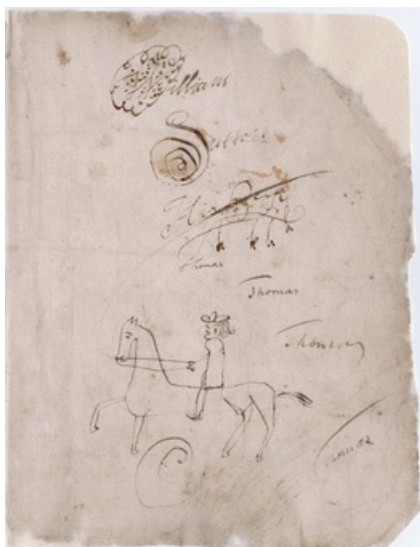 William
Sutton
His
Thomas
Thomas
Thomas
Thomas